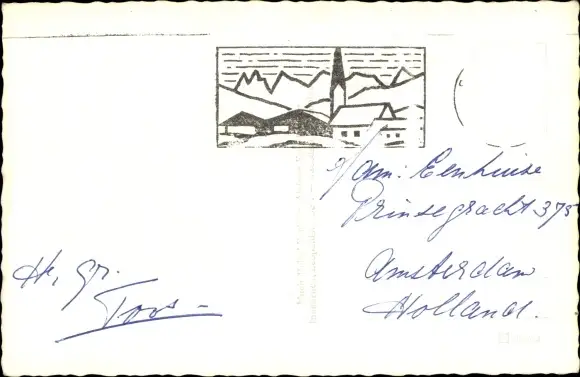 H. gr.
Toos
a/ fam: Eenhuise
Prinsegracht 375
Amsterdam
Holland.